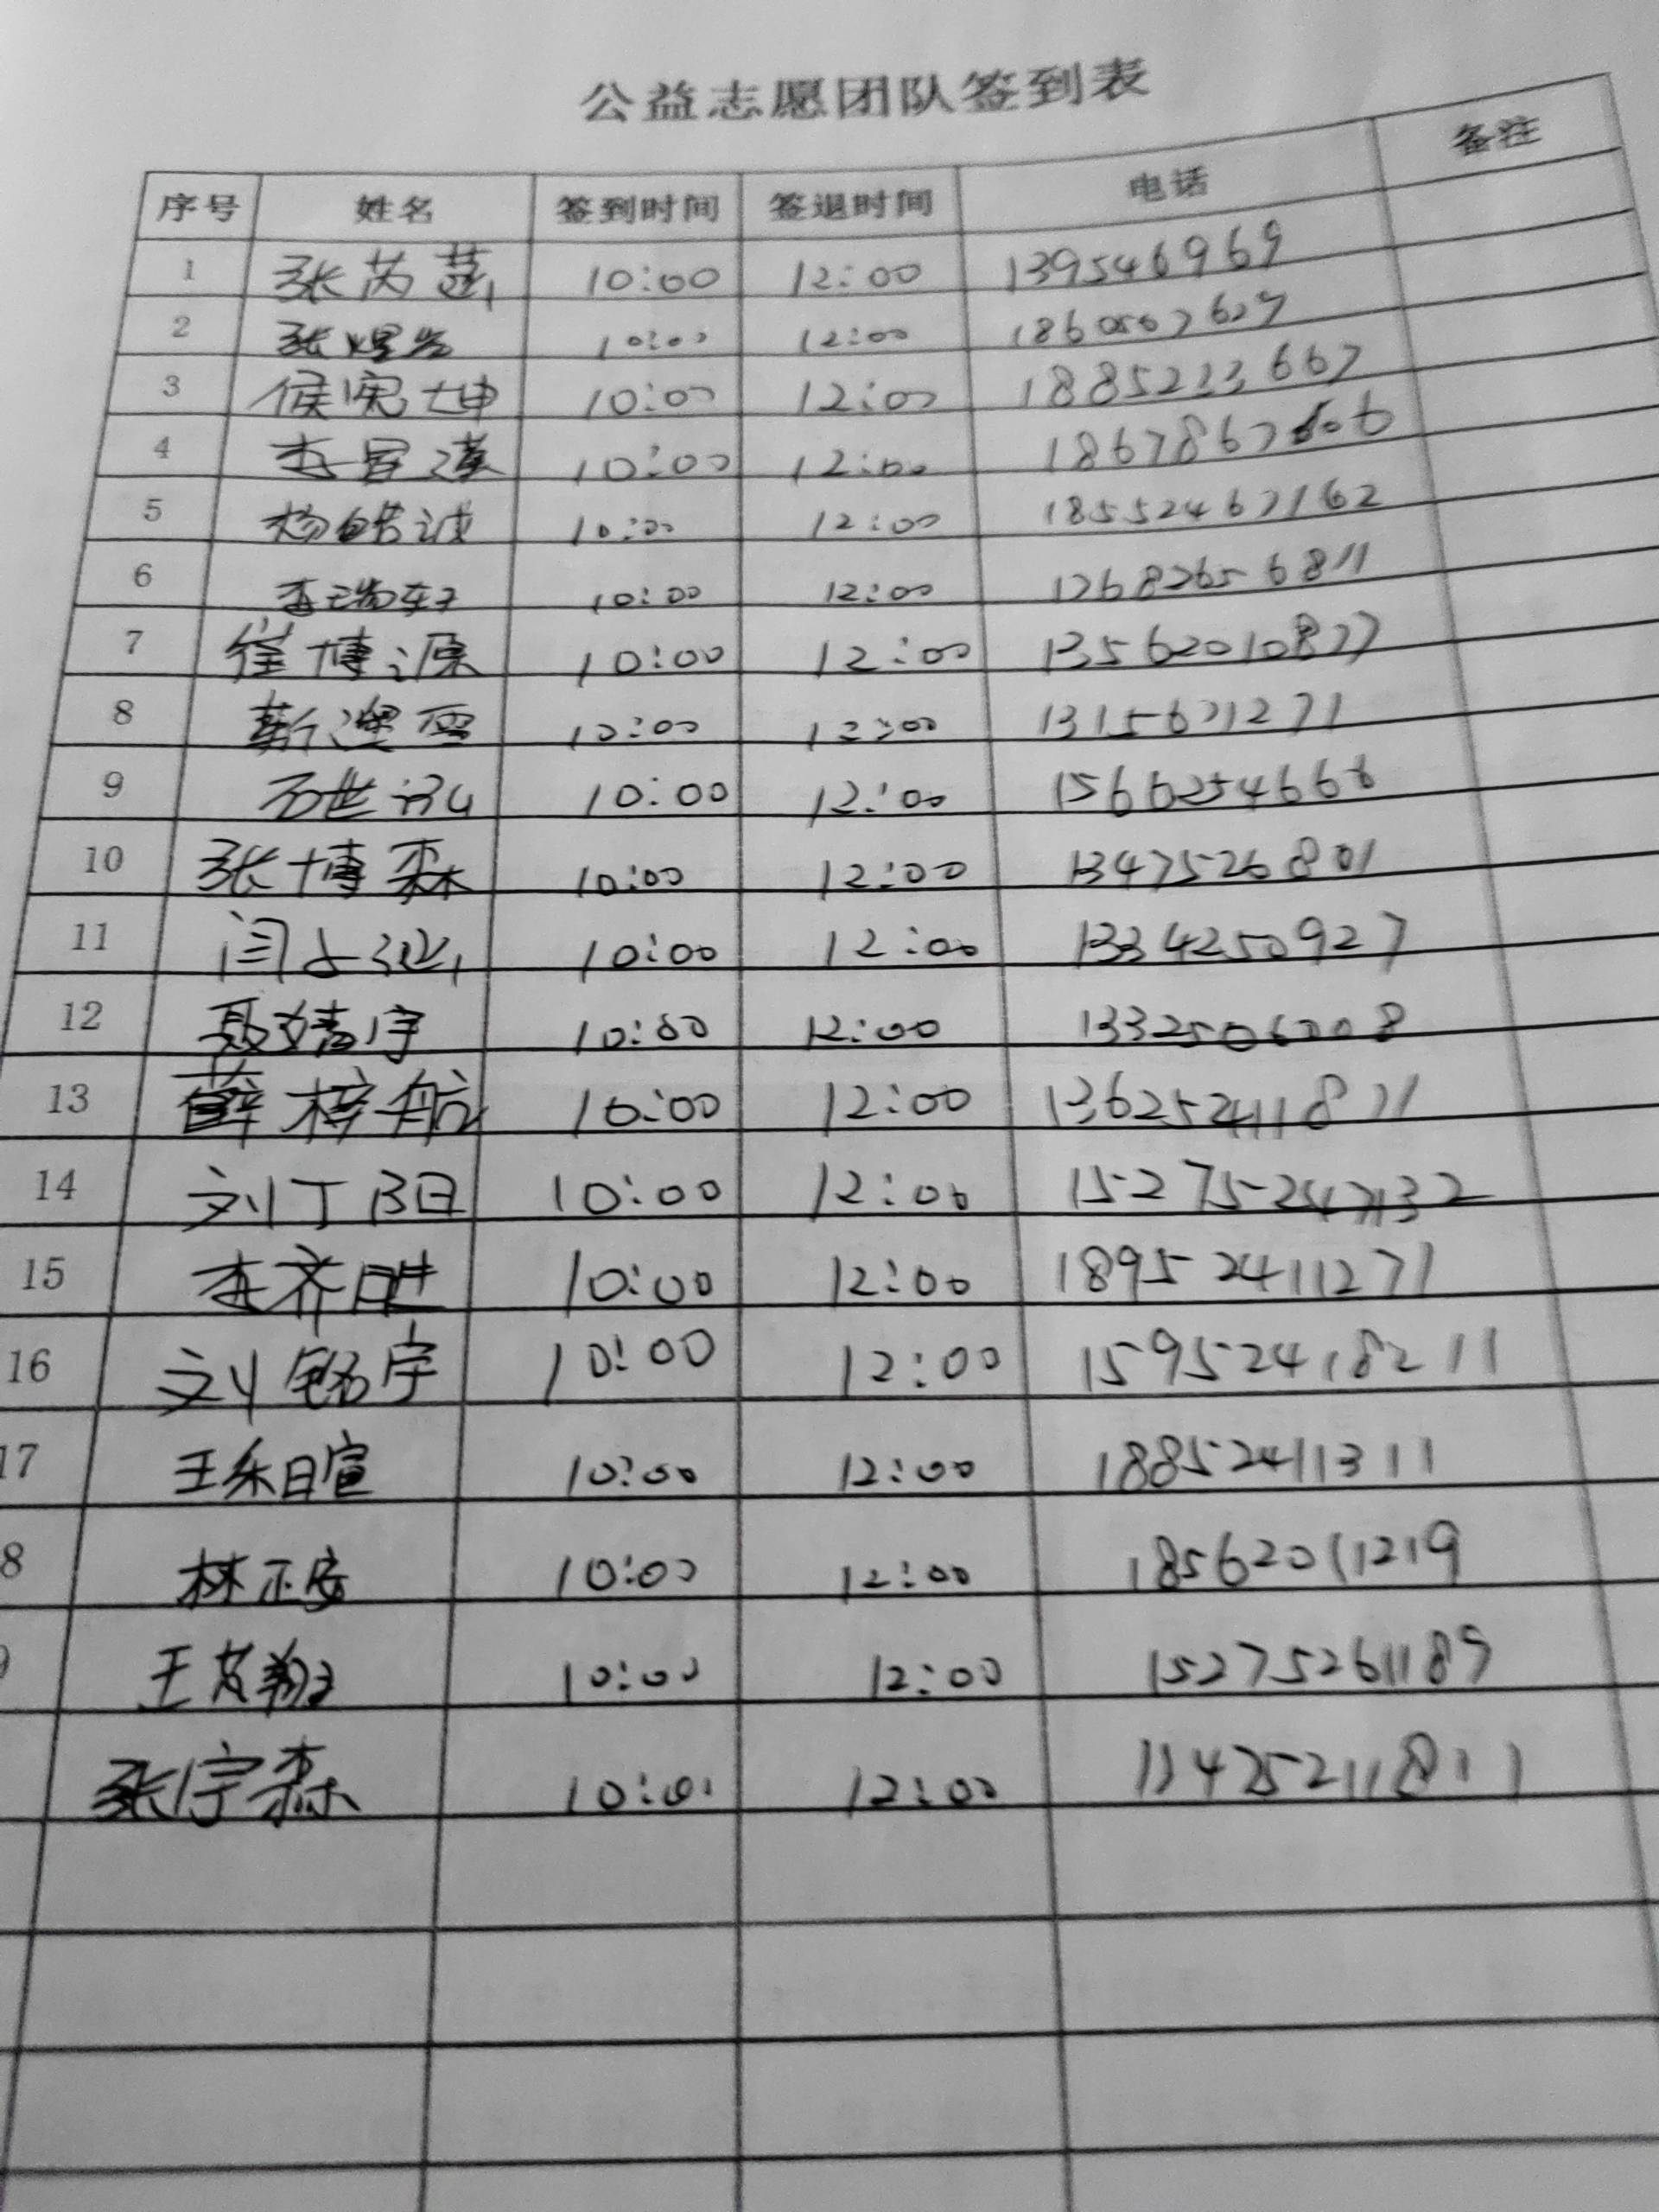 公益志愿团队签到表
序号 姓名 签到时间 签退时间 电话 备注
1 张芮菡 10:00 12:00 139546969
2 张煜 10:00 12:00
3 侯宪坤 10:00 12:00 1885223667
4 李冒 10:00 12:00
5 杨皓诚 10:00 12:00 18552467162
6 李瑞轩 10:00 12:00 17682656811
7 崔博源 10:00 12:00 13562010877
8 靳澳雪 10:00 12:00 1315671271
9 石世泓 10:00 12:00 1566254668
10 张博森 10:00 12:00 1347526801
11 闫 10:00 12:00 1334250927
12 聂婧宇 10:00 12:00
13 薛梓航 10:00 12:00 136252411871
14 刘丁阳 10:00 12:00 152752427132
15 李齐胜 10:00 12:00 18952411271
16 刘铭宇 10:00 12:00 159524118211
17 王乐暄 10:00 12:00 18852411311
8 林正安 10:00 12:00 18562011219
王茂翔 10:00 12:00 15275261189
张宇森 10:00 12:00